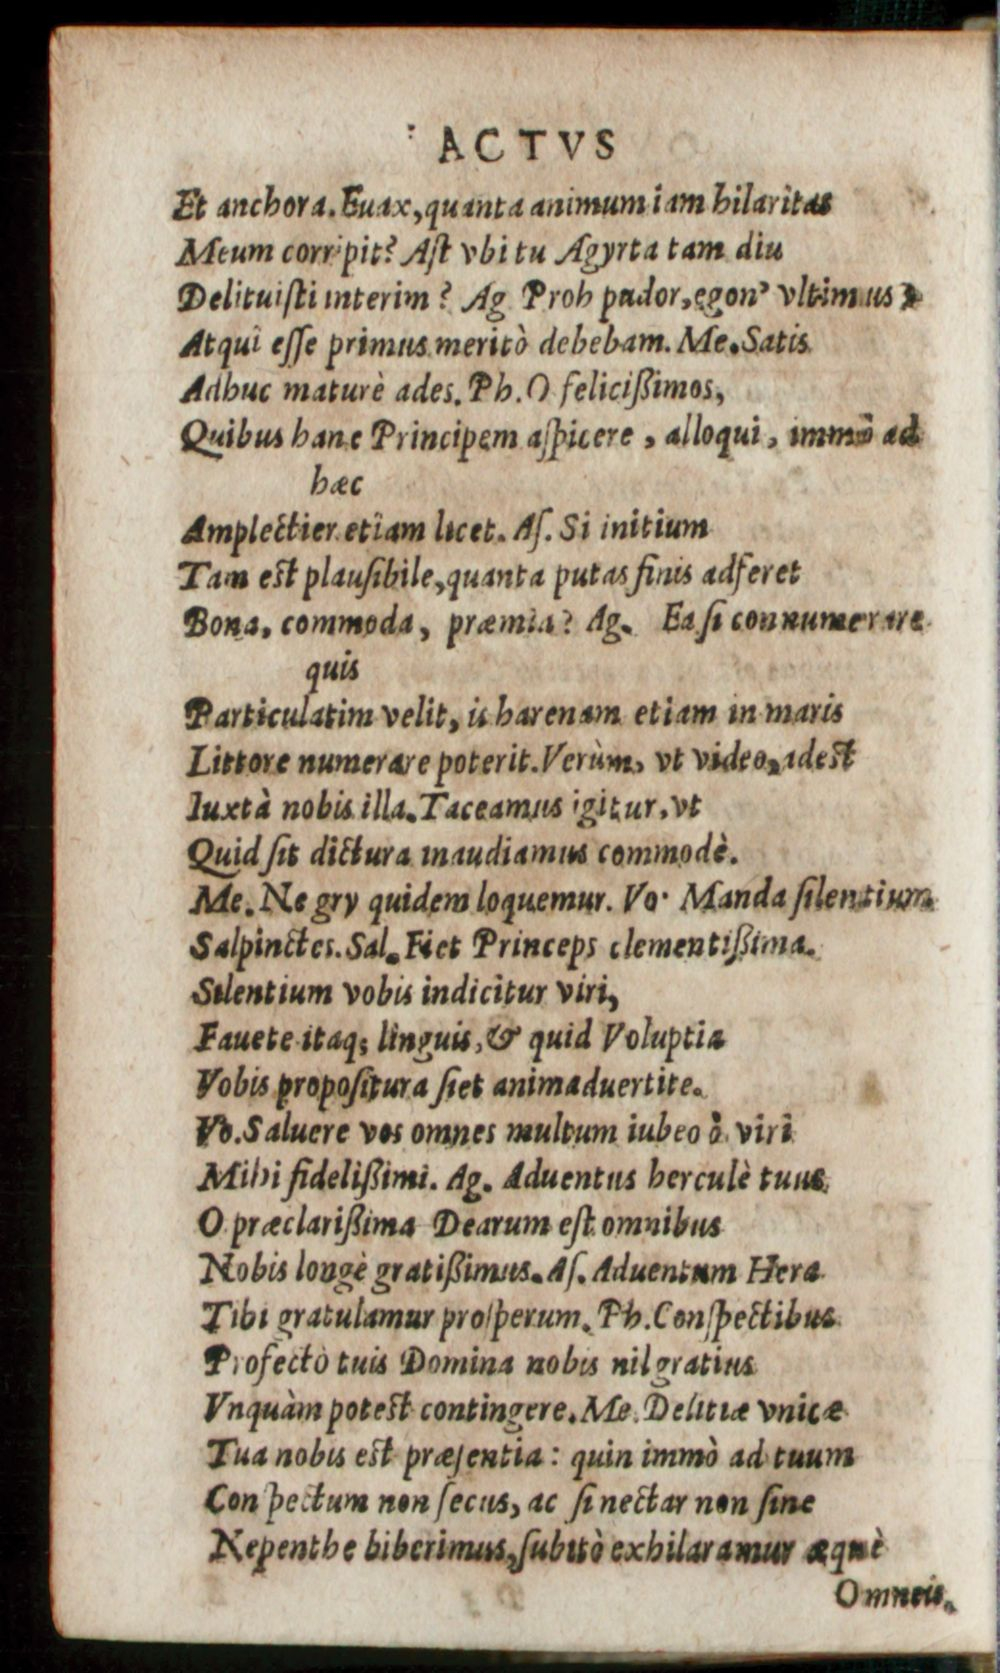 ACTVS
Et anchora. Euax, quanta animum iam hilaritas
Meum corripit? Aſt vbi tu Agyrta tam diu
Delituiſti interim? Ag Proh pudor, egon' vltimus?
Atqui eſſe primus meritò debebam. Me. Satis
Adhuc maturè ades. Ph. O feliciſſimos,
Quibus hanc Principem aſpicere, alloqui, immò ad
hæc
Amplectier etiam licet. Aſ. Si initium
Tam est plauſibile, quanta putas finis adferet
Bona, commoda, præmia? Ag. Ea ſi connumerare
quis
Particulatim velit, is harenam etiam in maris
Littore numerare poterit. Verùm, vt video, adest
Iuxtà nobis illa. Taceamus igitur, vt
Quid ſit dictura inaudiamus commodè.
Me. Ne gry quidem loquemur. Vo. Manda ſilentium
Salpinctes. Sal. Fiet Princeps clementiſſima.
Silentium vobis indicitur viri,
Fauete itaq; linguis, & quid Voluptia
Vobis propoſitura ſiet animaduertite.
Vo. Saluere vos omnes multum iubeo ò viri
Mihi fideliſſimi. Ag. Aduentus herculè tuus
O præclariſſima Dearum eſt omnibus
Nobis longè gratiſſimus. Aſ. Aduentum Hera
Tibi gratulamur proſperum. Ph. Conſpectibus
Profectò tuis Domina nobis nil gratius
Vnquàm potest contingere. Me. Delitiæ vnicæ
Tua nobis est præſentia: quin immò ad tuum
Conſpectum non ſecus, ac ſi nectar non ſine
Nepenthe biberimus, ſubitò exhilaramur æquè
Omneis.